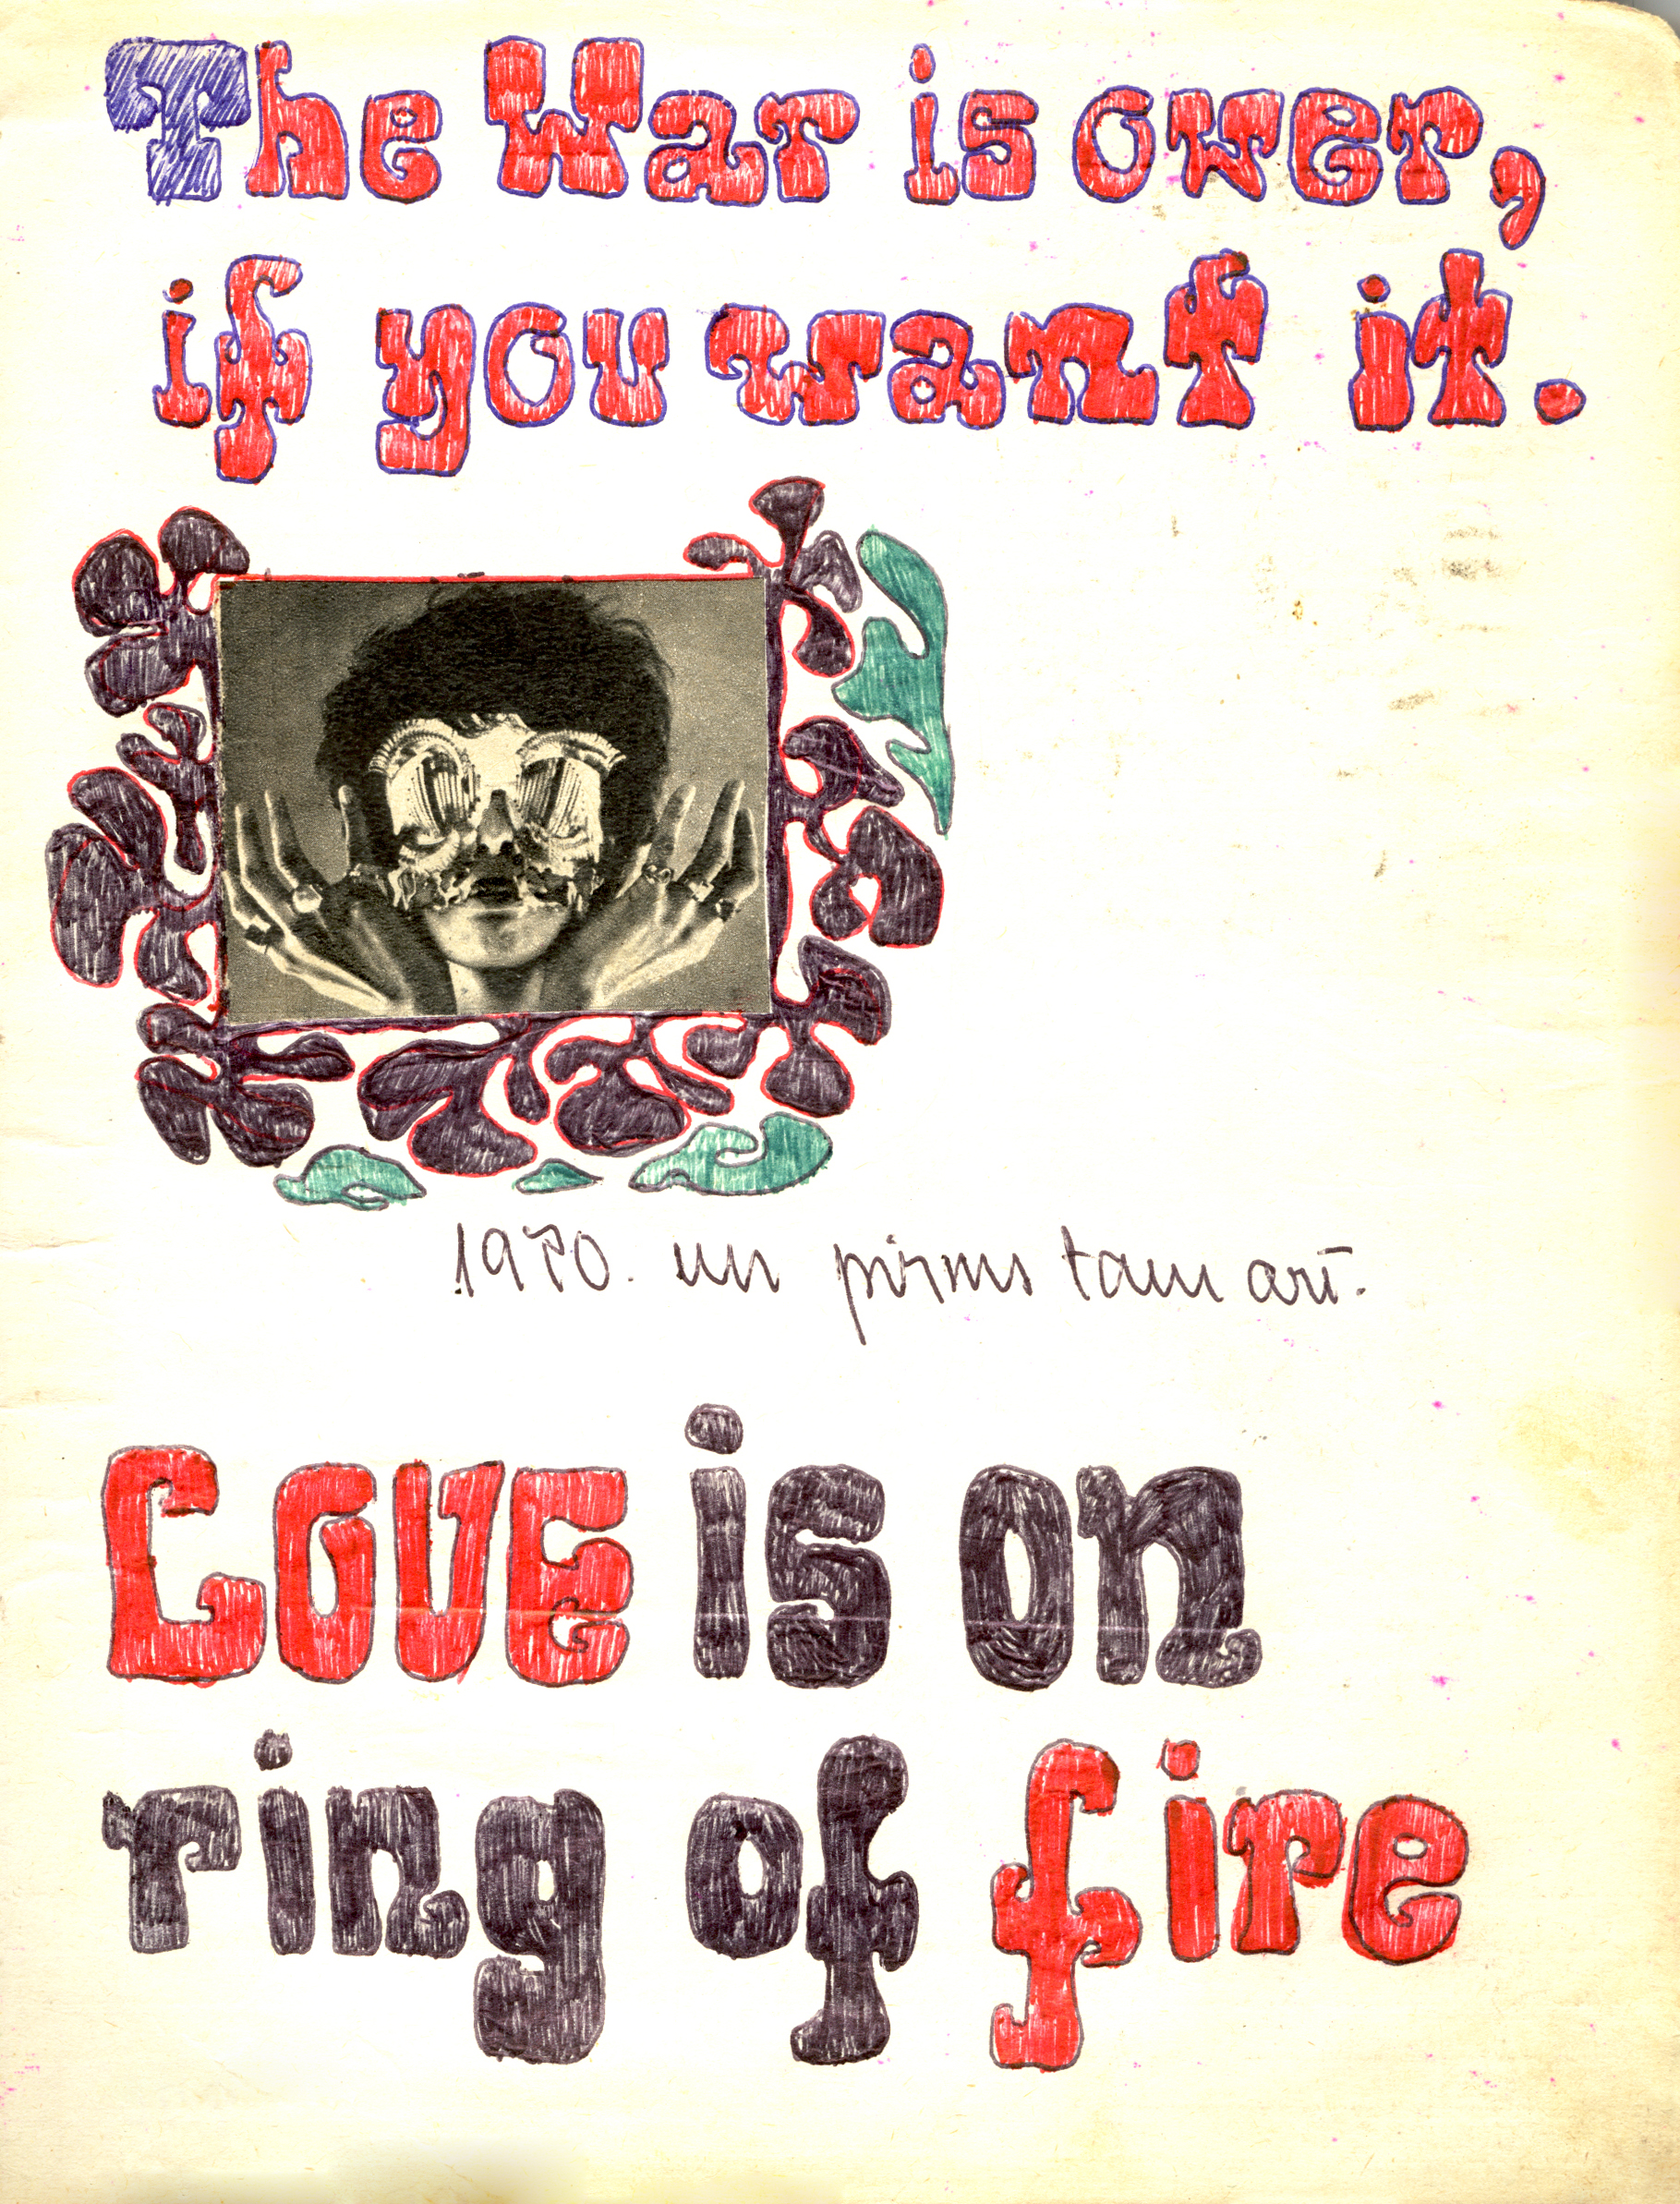 The War is ower,
if you want it.
1970. un pirms tam arī.
Love is on
ring of fire